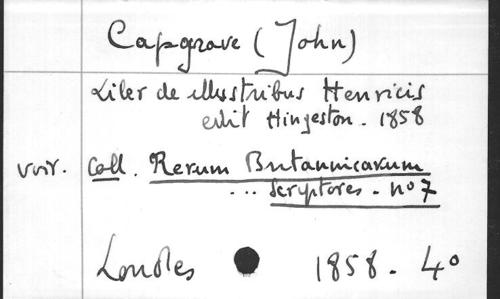 Capgrave (John)
Liber de illustribus Henricis
edit Hingeston. 1858
voir. Coll. Rerum Britannicarum
... Scriptores. no 7
Londres 1858. 4o